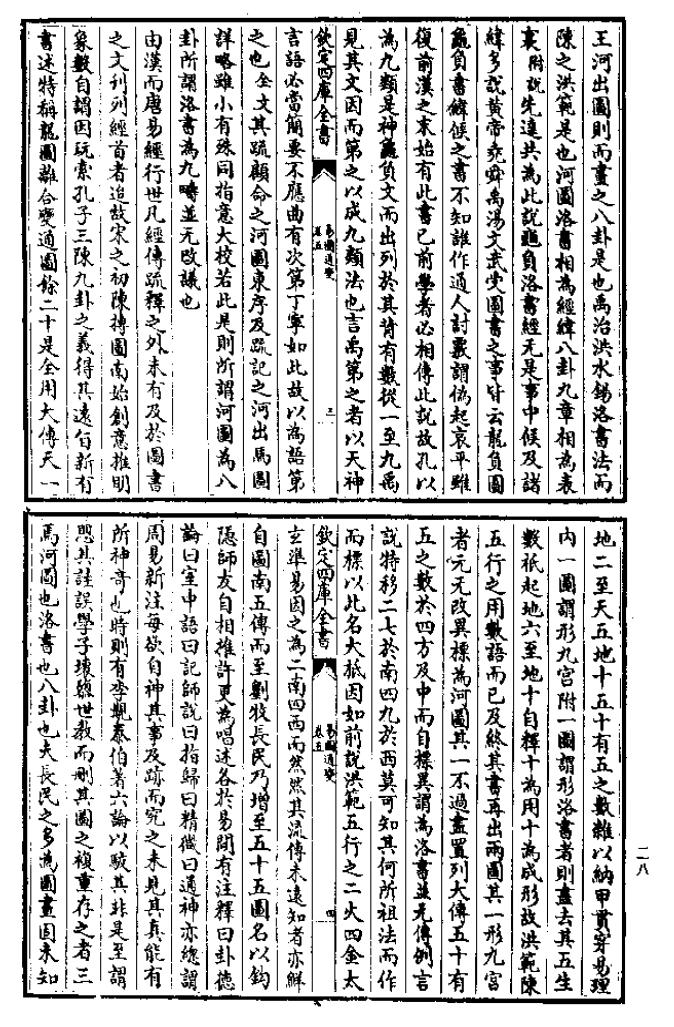 王河出圖則而畫之八卦是也禹治洪水錫洛書法而
陳之洪範是也河圖洛書相為經緯八卦九章相為表
裏附說先達共為此說龜負洛書經无是事中候及諸
緯多說黃帝堯舜禹湯文武受圖書之事皆云龍負圖
龜負書緯候之書不知誰作通人討覈謂偽起哀平雖
復前漢之末始有此書已前學者必相傳此說故孔以
為九類是神龜負文而出列於其背有數從一至九禹
見其文因而第之以成九類法也言禹第之者以天神
欽定四庫全書
易圖通變
卷五
三
言語必當簡要不應曲有次第丁寧如此故以為語第
之也全文其疏顧命之河圖東序及疏記之河出馬圖
詳略雖小有殊同指意大校若此是則所謂河圖為八
卦所謂洛書為九疇並无改議也
由漢而唐易經行世凡經傳疏釋之外未有及於圖書
之文刊列經首者迨故宋之初陳摶圖南始創意推明
象數自謂因玩索孔子三陳九卦之義得其遠旨新有
書述特稱龍圖離合變通圖餘二十是全用大傳天一
地二至天五地十五十有五之數雜以納甲貫穿易理
內一圖謂形九宮附一圖謂形洛書者則盡去其五生
數祇起地六至地十自釋十為用十為成形故洪範陳
五行之用數語而已及終其書再出兩圖其一形九宮
者元无改異標為河圖其一不過盡置列大傳五十有
五之數於四方及中而自標異謂為洛書並无傳例言
說特移二七於南四九於西莫可知其何所祖法而作
而標以此名大抵因如前說洪範五行之二火四金太
欽定四庫全書
易圖通變
卷五
四
玄準易因之為二南四西而然然其流傳未遠知者亦鮮
自圖南五傳而至劉牧長民乃增至五十五圖名以鈎
隱師友自相推許更為唱述各於易間有注釋曰卦德
論曰室中語曰記師說曰指歸曰精微曰通神亦總謂
周易新注每欲自神其事及跡而究之未見其真能有
所神奇也時則有李覯泰伯著六論以駁其非是至謂
愳其詿誤學子壞隳世教而刪其圖之複重存之者三
焉河圖也洛書也八卦也夫長民之多為圖畫固未知
二八